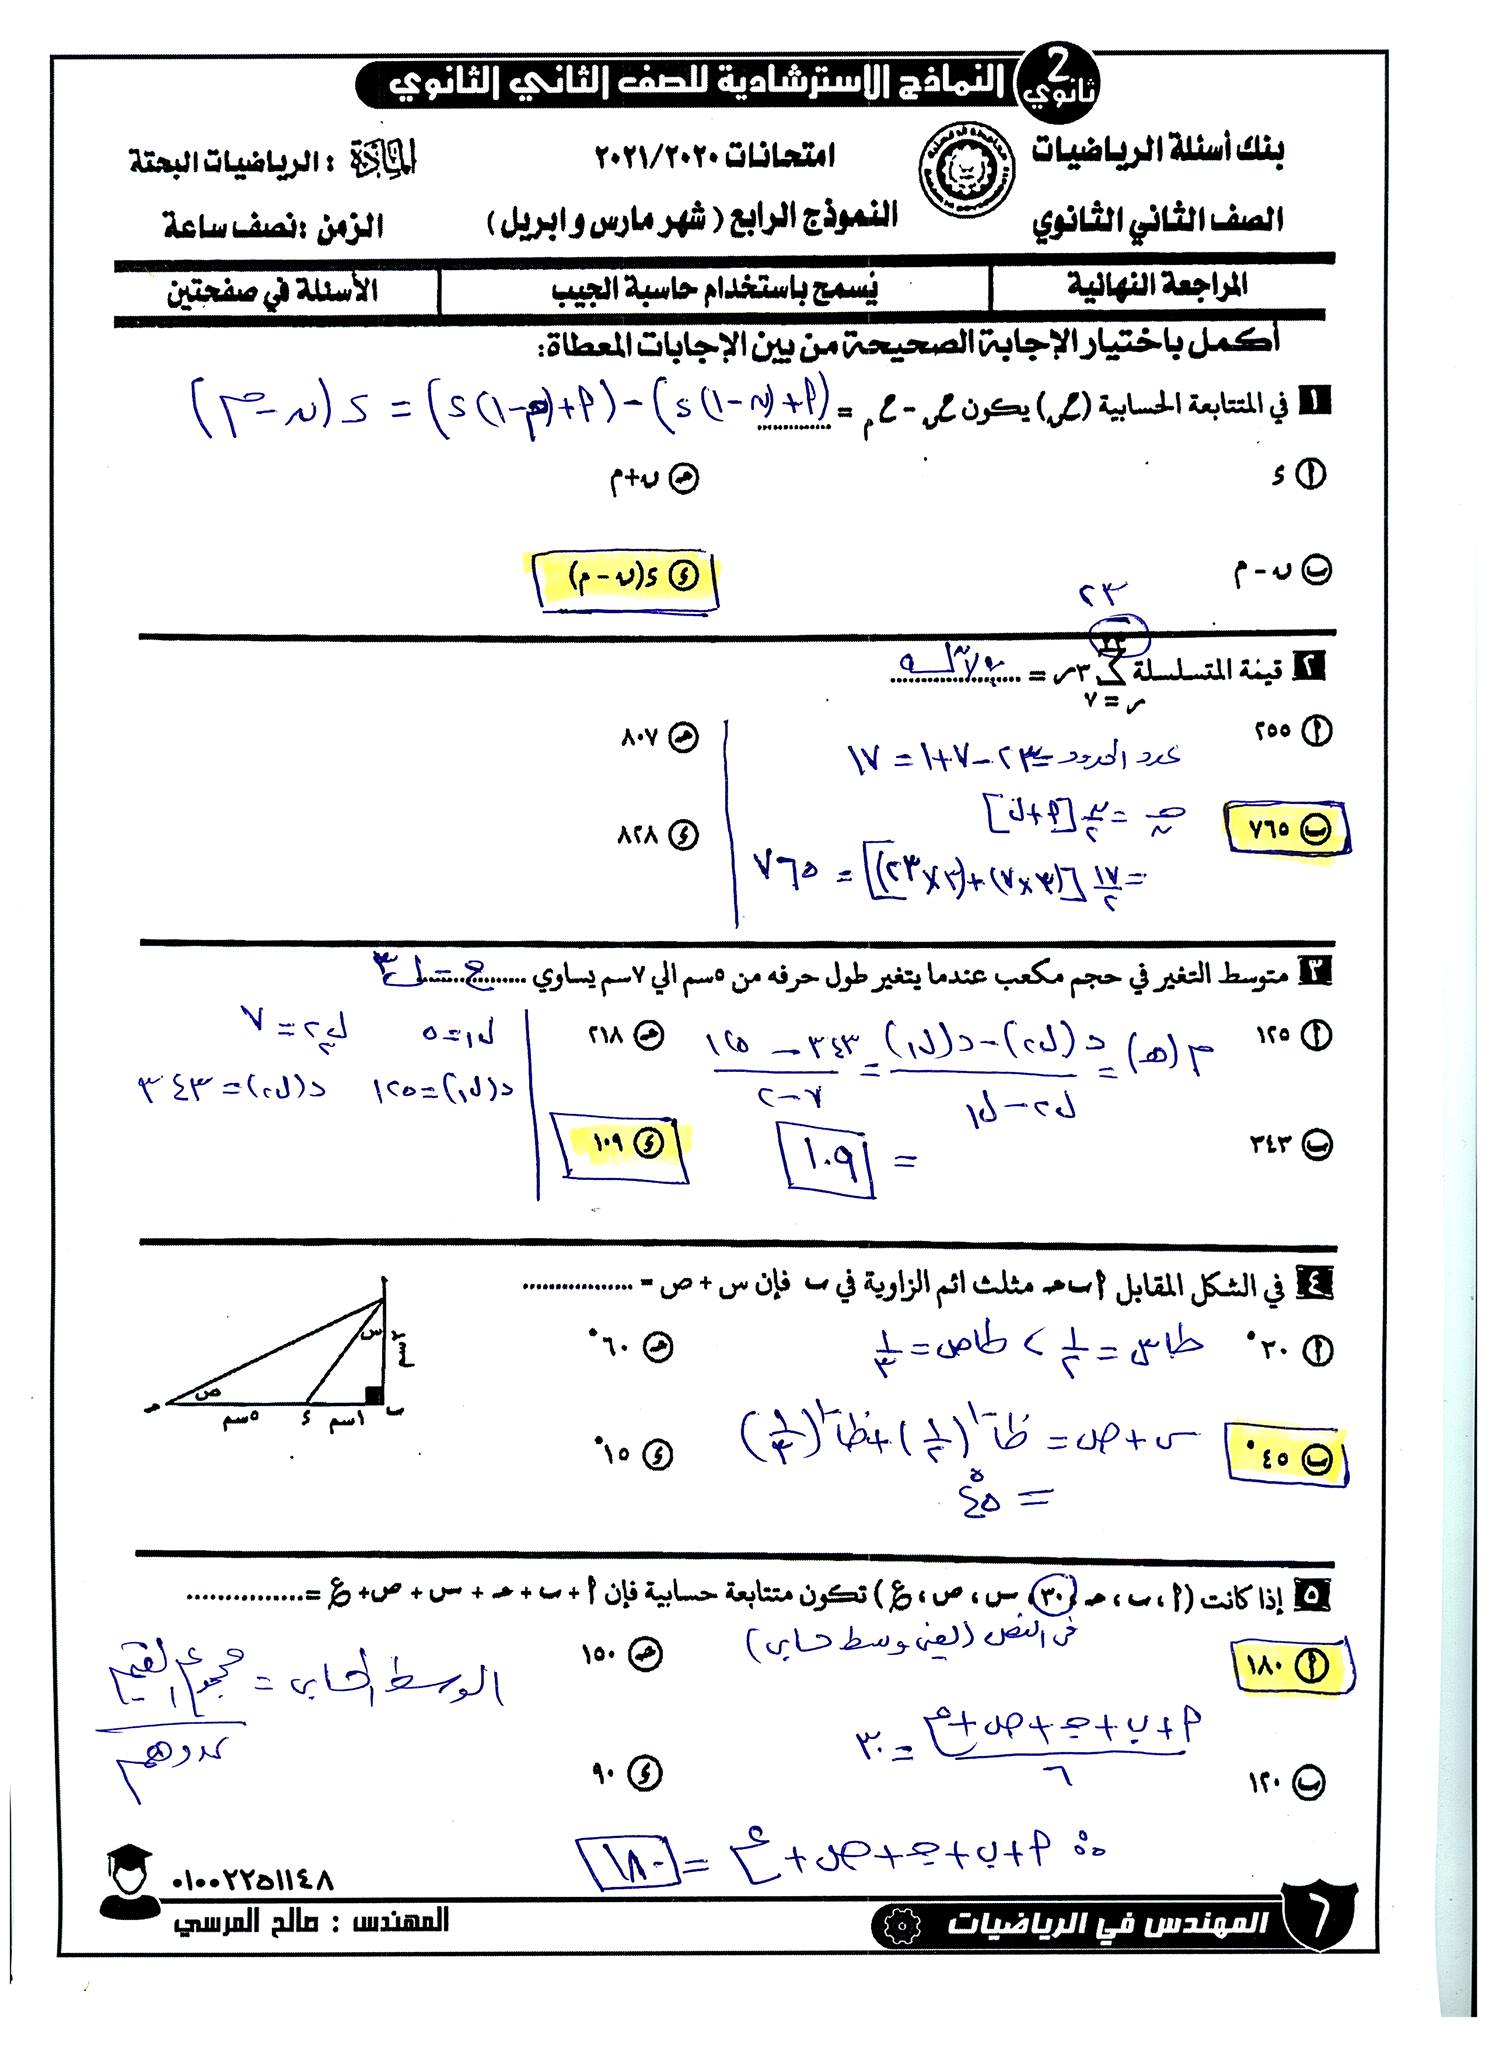 2 ثانوي
النماذج الاسترشادية للصف الثاني الثانوي
بنك أسئلة الرياضيات
امتحانات ٢٠٢١/٢٠٢٠
المادة : الرياضيات البحتة
الصف الثاني الثانوي
النموذج الرابع ( شهر مارس و ابريل)
الزمن : نصف ساعة
المراجعة النهائية
يُسمح باستخدام حاسبة الجيب
الأسئلة في صفحتين
أكمل باختيار الإجابة الصحيحة من بين الإجابات المعطاة:
١ في المتتابعة الحسابية (ح ں) يكون ح ں - ح م = (٩ + (ں - ١)s) - (٩ + (م - ١)s) = s(ں - م)
أ s
حـ ں + م
ب ں - م
s s(ں - م)
٢٣
٢ قيمة المتسلسلة ٢٣ ∑ ٣ر = ............
ر = ٧
أ ٢٥٥
حـ ٨٠٧
عدد الحدود = ٢٣ - ٧ + ١ = ١٧
ب ٧٦٥
s ٨٢٨
حـ ں = ں/٢ [أ + ل]
= ١٧/٢ [(٣×٧) + (٣×٢٣)] = ٧٦٥
٣ متوسط التغير في حجم مكعب عندما يتغير طول حرفه من ٥سم الي ٧سم يساوي ......... ح = ل٣
أ ١٢٥
حـ ٢١٨
م(هـ) = د(ل٢) - د(ل١) / ل٢ - ل١ = ٣٤٣ - ١٢٥ / ٧ - ٢
ل١ = ٥
ل٢ = ٧
د(ل١) = ١٢٥
د(ل٢) = ٣٤٣
ب ٣٤٣
s ١٠٩
= ١٠٩
٤ في الشكل المقابل أ ب حـ مثلث ائم الزاوية في ب فإن س + ص = ................
أ ٣٠°
حـ ٦٠°
طاس = ١/٢ ، طاص = ١/٣
س
٢سم
ص
حـ
٥سم
s
١سم
ب
ب ٤٥°
s ١٥°
س + ص = ظا⁻¹(١/٢) + ظا⁻¹(١/٣)
= ٤٥°
٥ إذا كانت (أ ، ب ، حـ ، ٣٠ ، س ، ص ، ع) تكون متتابعة حسابية فإن أ + ب + حـ + س + ص + ع = ...............
في النص (يعني وسط حسابي)
أ ١٨٠
حـ ١٥٠
الوسط الحسابي = مجموع القيم / عددهم
أ + ب + حـ + ص + ع / ٦ = ٣٠
ب ١٢٠
s ٩٠
∴ أ + ب + حـ + ص + ع = ١٨٠
٠١٠٠٢٢٥١١٤٨
المهندس : صالح المرسي
المهندس في الرياضيات
٦